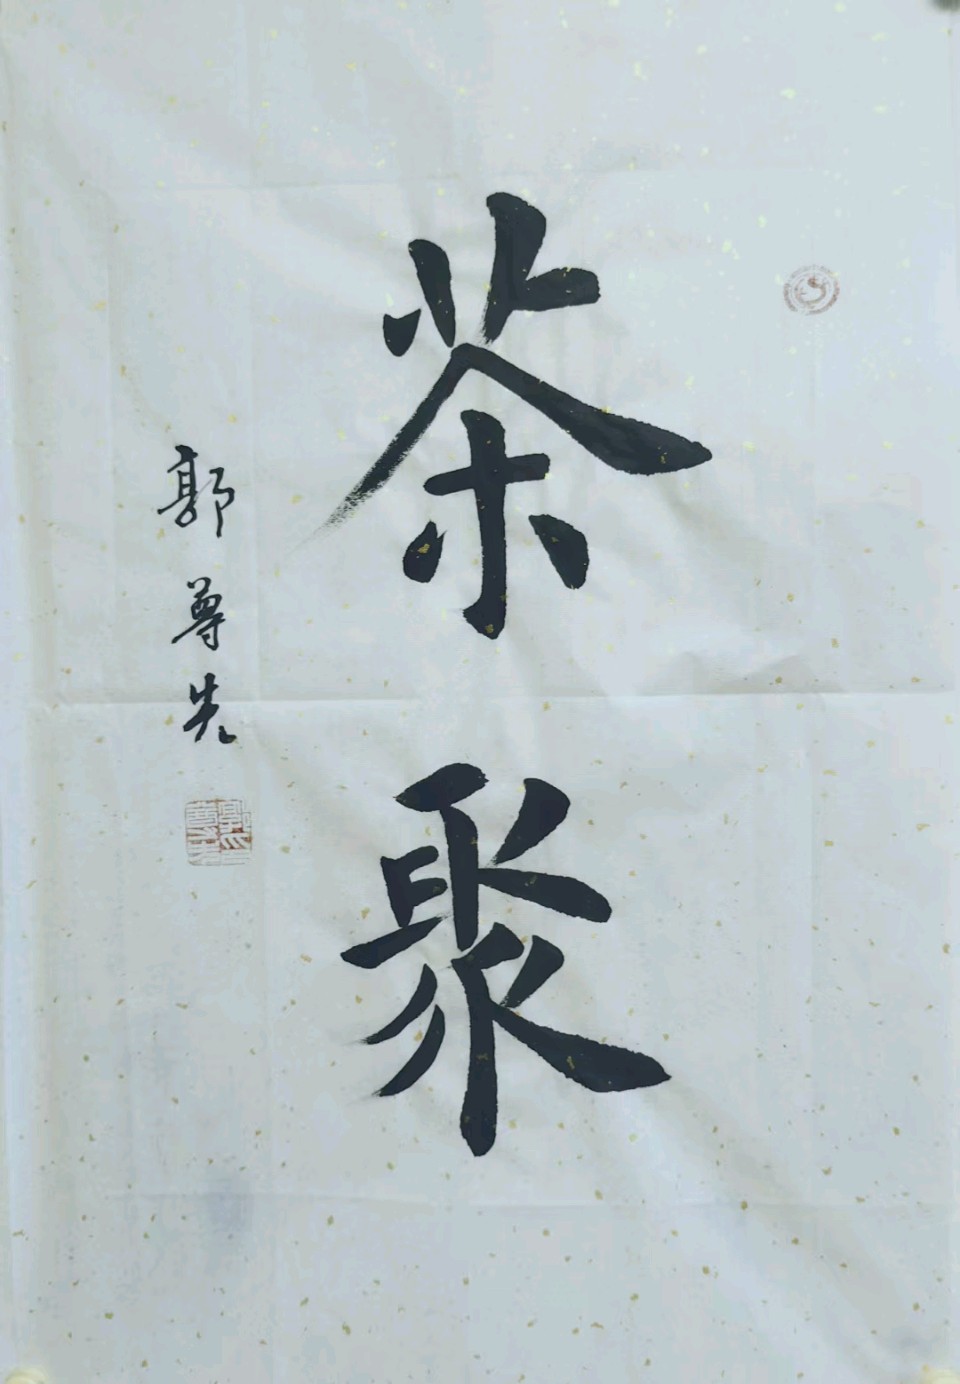 茶聚
郭尊先